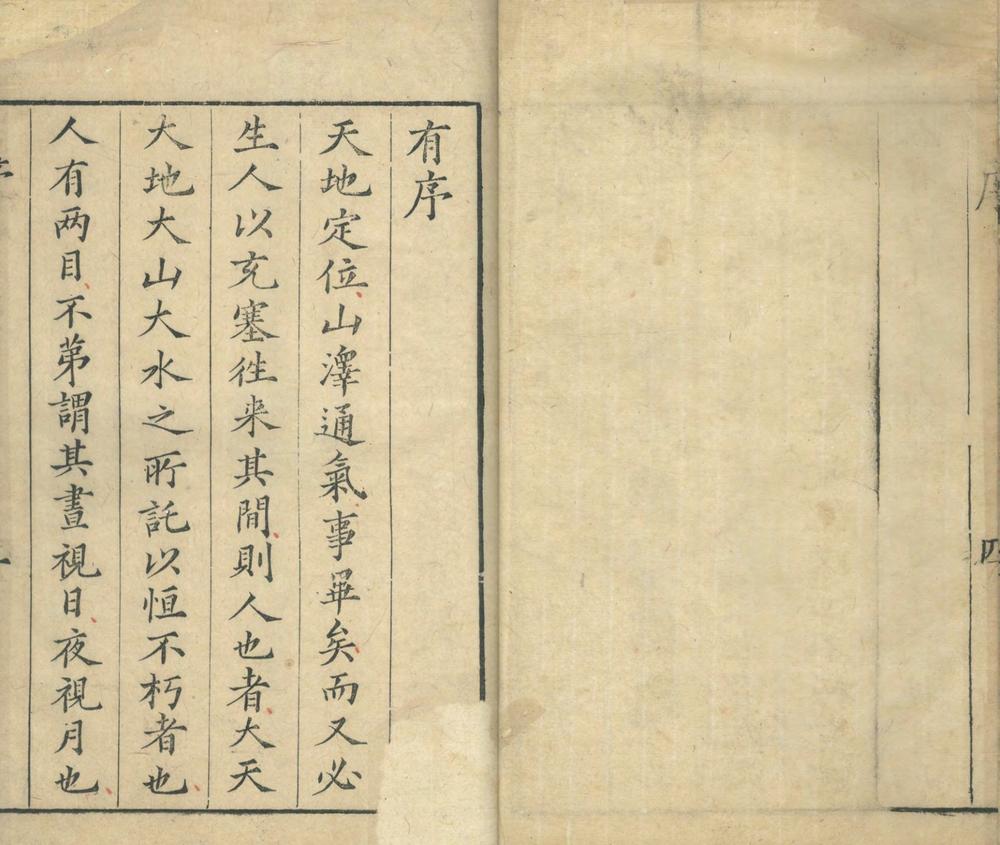 序
四
有序
天地定位山澤通氣事畢矣而又必
生人以充塞徃来其間則人也者大天
大地大山大水之所託以恒不朽者也
人有两目不苐謂其晝視日夜視月也